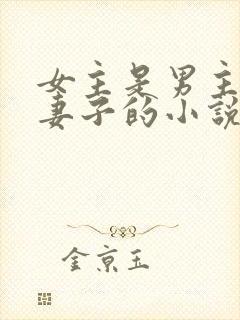 女主是男主
妻子的小說
金京玉